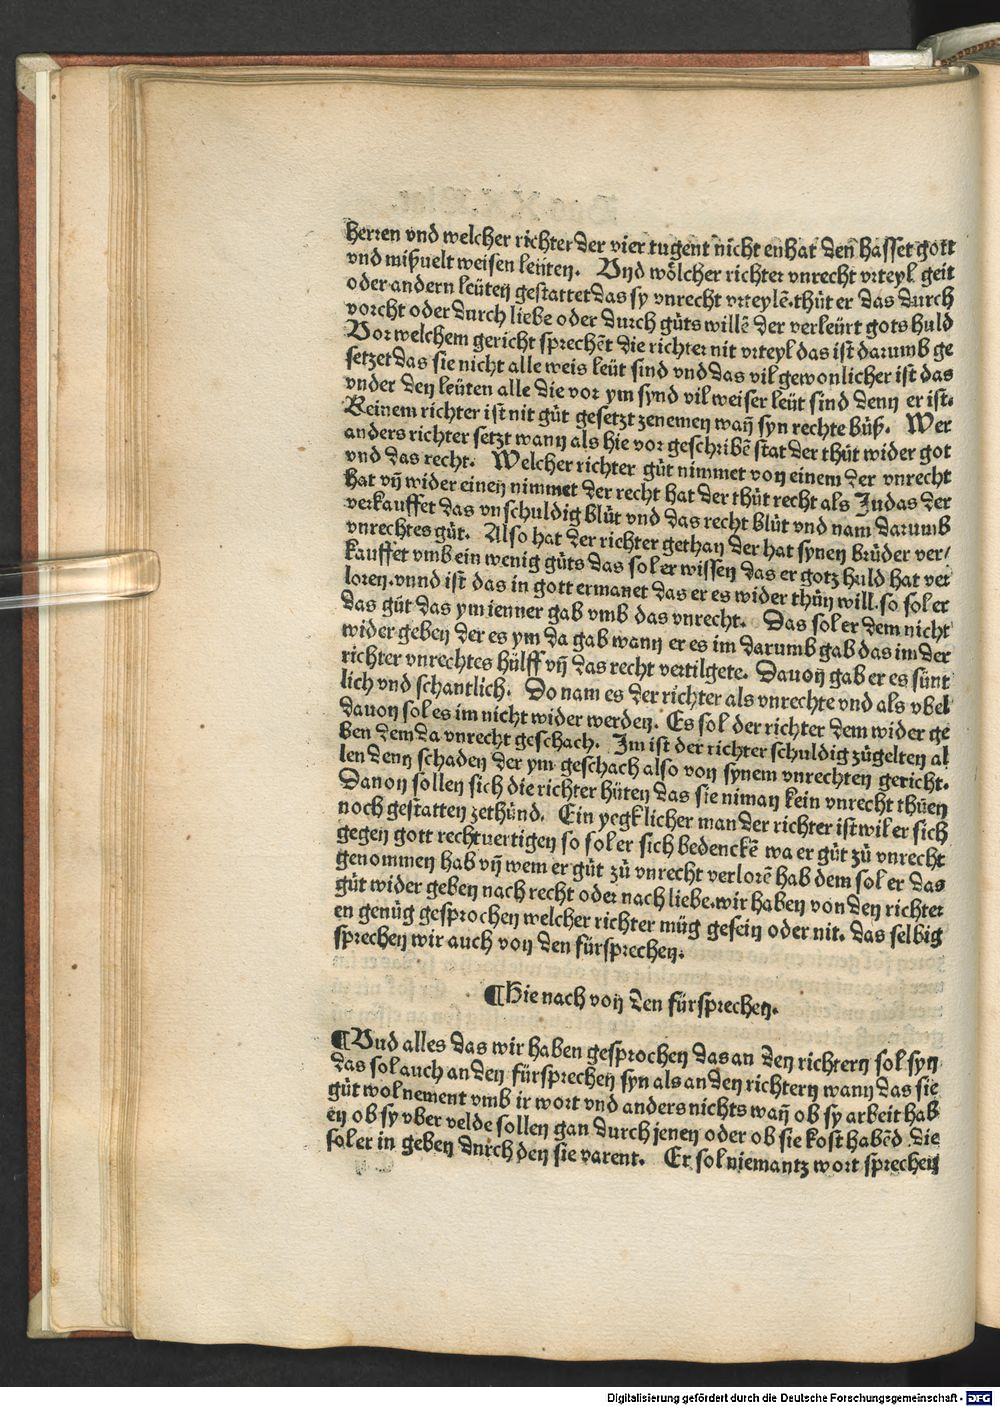 herren vnd welcher richter der vier tugent nicht enhat den hasset gott
vnd mißuelt weisen leüten. Vnd wölcher richter vnrecht vrteyl geit
oder andern leüten gestattet das sy vnrecht vrteylē. thüt er das durch
vorcht oder durch liebe oder durch güts willē der verleürt gots huld
Vor welchem gericht sprechēt die richter nit vrteyl das ist darumb ge
setzet das sie nicht alle weis leüt sind vnd das vil gewonlicher ist das
vnder den leüten alle die vor ym synd vil weiser leüt sind denn er ist.
Keinem richter ist nit güt gesetzt zenemen wañ syn rechte büß. Wer
anders richter setzt wann als hie vor geschribē stat der thüt wider got
vnd das recht. Welcher richter güt nimmet von einem der vnrecht
hat vñ wider einen nimmet der recht hat der thüt recht als Judas der
verkauffet das vnschuldig blüt vnd das recht blüt vnd nam darumb
vnrechtes güt. Also hat der richter gethan der hat synen brüder ver/
kauffet vmb ein wenig güts das sol er wissen das er gotz huld hat ver
loren. vnnd ist das in gott ermanet das er es wider thün will. so sol er
das güt das ym ienner gab vmb das vnrecht. Das sol er dem nicht
wider geben der es ym da gab wann er es im darumb gab das im der
richter vnrechtes hülff vñ das recht vertilgete. Dauon gab er es sünt
lich vnd schantlich. Do nam es der richter als vnrechte vnd als vbel
dauon sol es im nicht wider werden. Es sol der richter dem wider ge
ben dem da vnrecht geschach. Im ist der richter schuldig zügelten al
len denn schaden der ym geschach also von synem vnrechten gericht.
Danon sollen sich die richter hüten das sie niman kein vnrecht thüen
noch gestatten zethünd. Ein yegklicher man der richter ist wil er sich
gegen gott rechtuertigen so sol er sich bedenckē wa er güt zü vnrecht
genommen hab vñ wem er güt zü vnrecht verlorē hab dem sol er das
güt wider geben nach recht oder nach liebe. wir haben von den richter
en genüg gesprochen welcher richter müg gesein oder nit. das selbig
sprechen wir auch von den fürsprechen.
¶Hie nach von den fürsprechen.
¶Vnd alles das wir haben gesprochen das an den richtern sol syn
das sol auch an den fürsprechen syn als an den richtern wann das sie
güt wol nement vmb ir wort vnd anders nichts wañ ob sy arbeit hab
en ob sy vber velde sollen gan durch jenen oder ob sie kost habēd die
sol er in geben durch den sie varent. Er sol niemantz wort sprechen
Digitalisierung gefördert durch die Deutsche Forschungsgemeinschaft - DFG